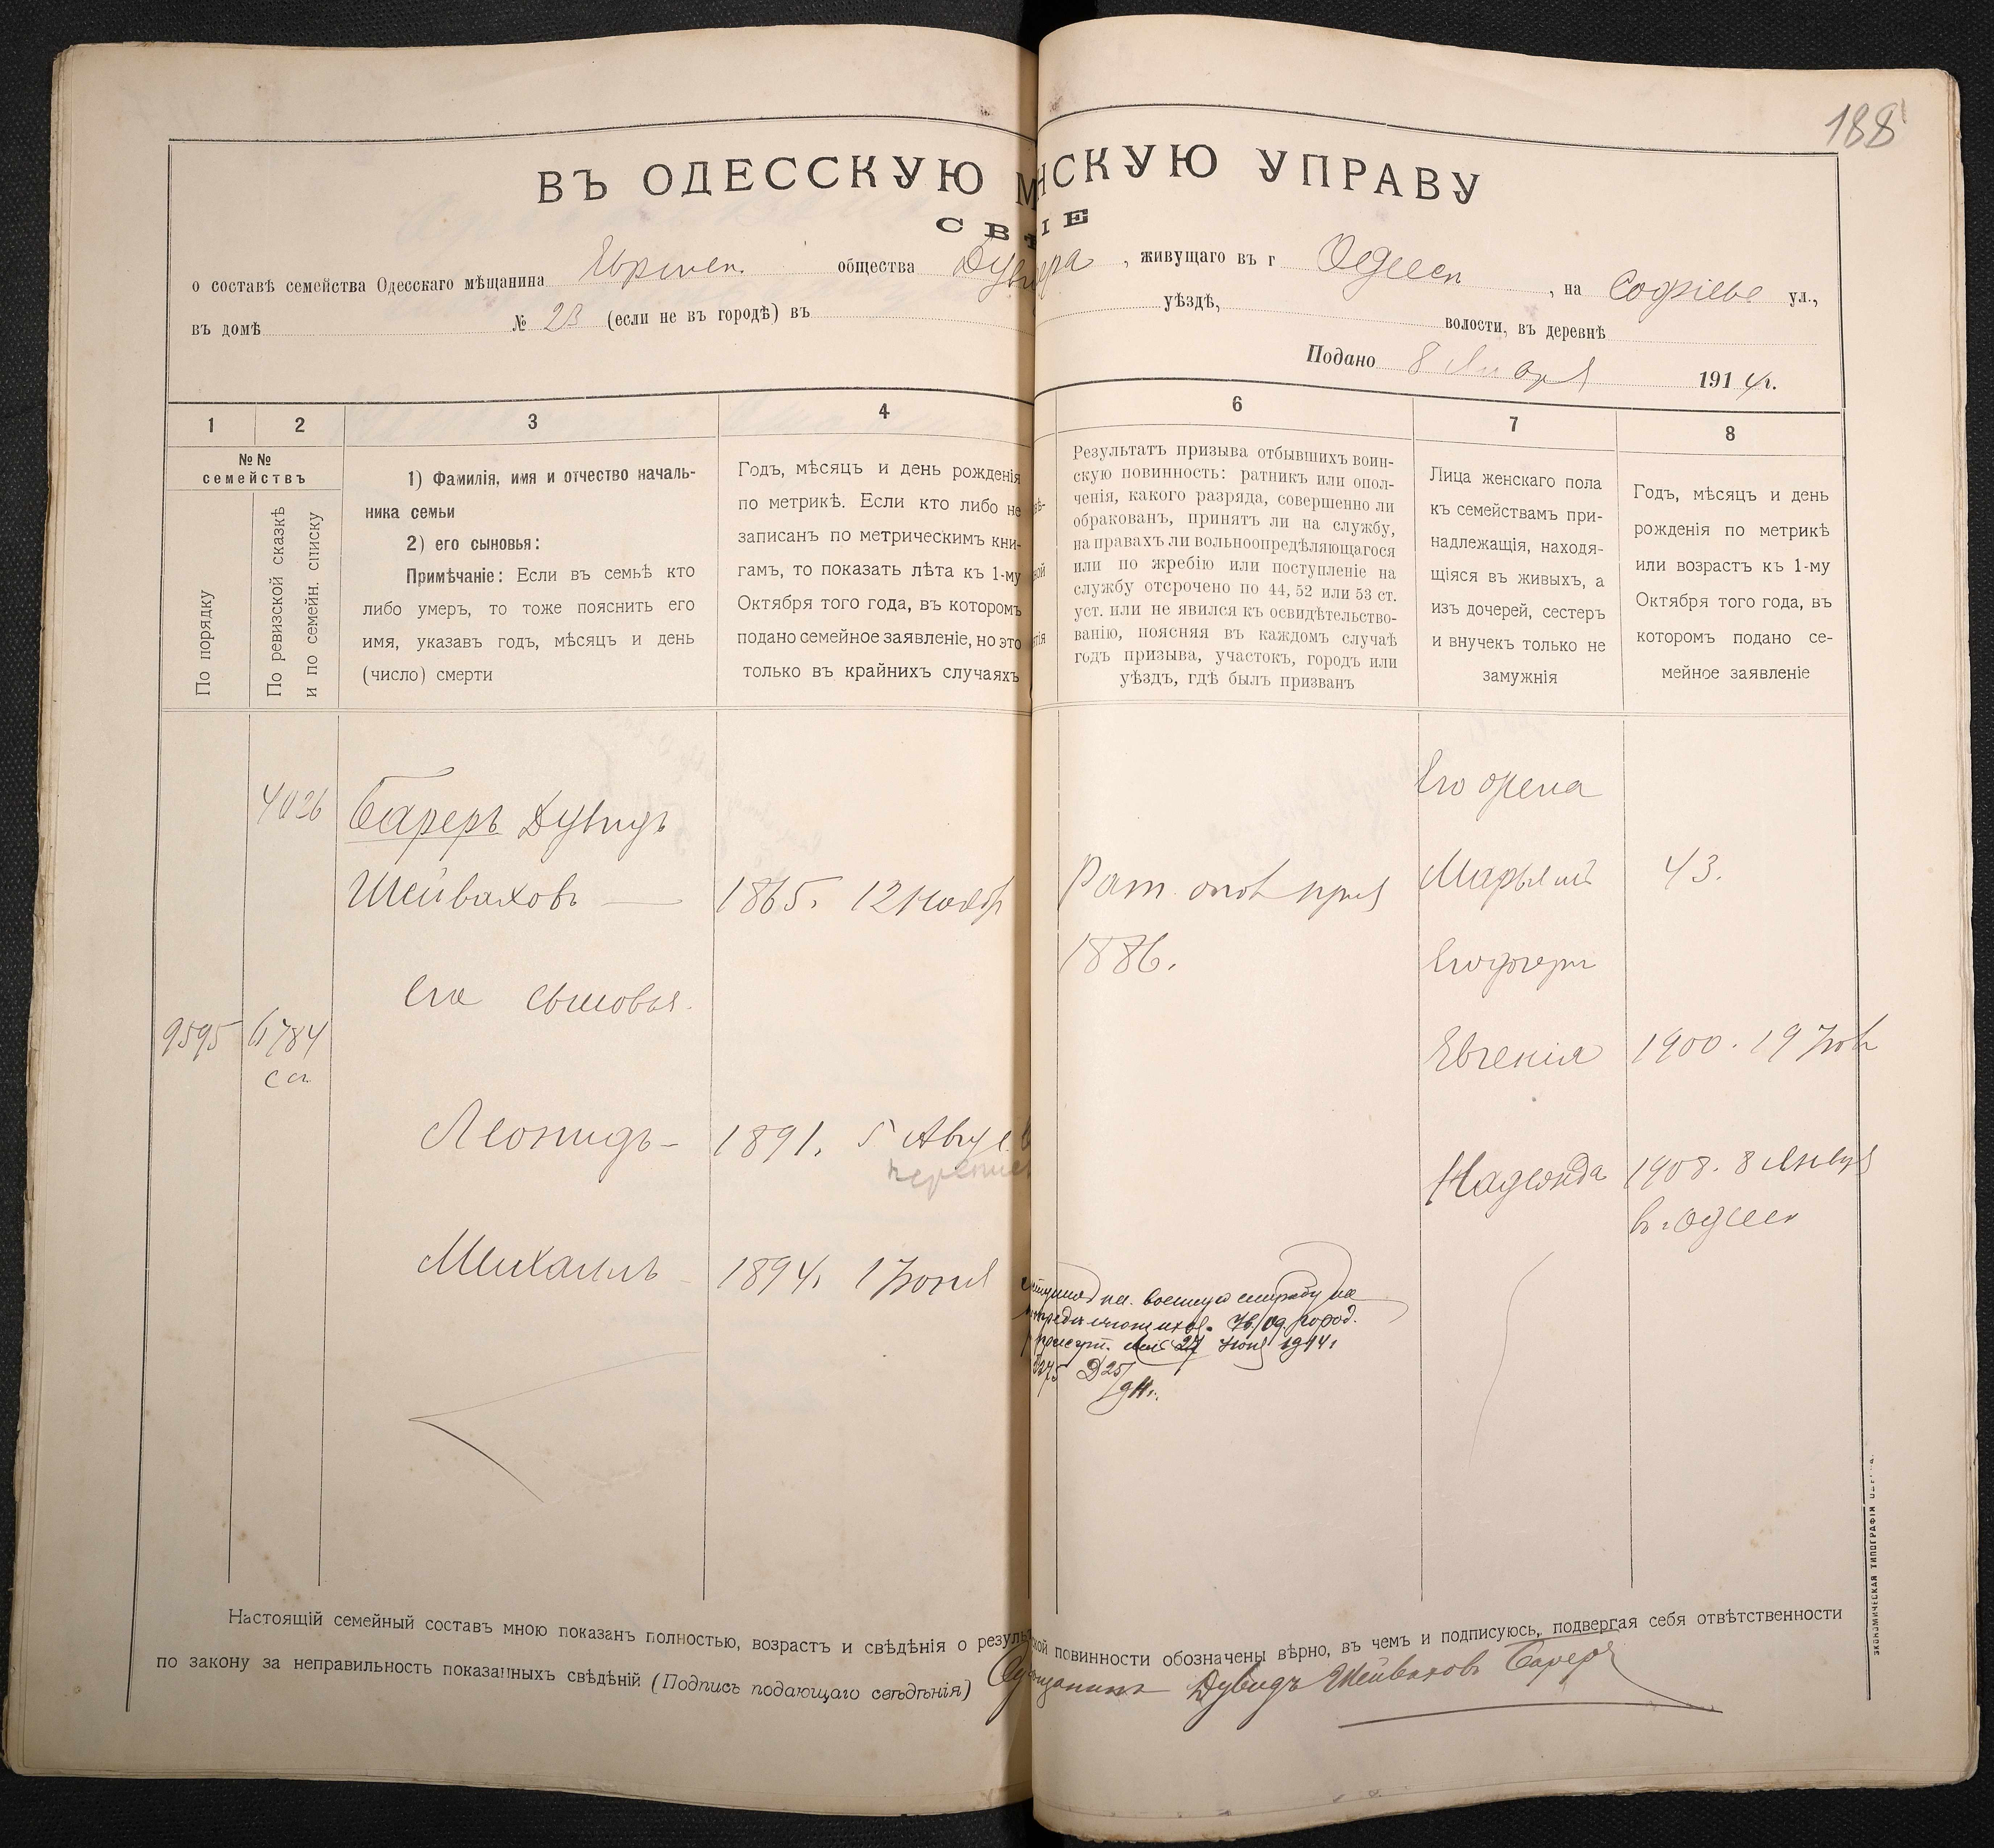 188
ВЪ ОДЕССКУЮ М НСКУЮ УПРАВУ
СВ ІЕ
о составѣ семейства Одесскаго мѣщанина общества , живущаго въ г Одессѣ , на Софіевс ул.,
въ домѣ № 23 (если не въ городѣ) въ уѣздѣ, волости, въ деревнѣ
Подано 8 Января 1914 г.
1 2 3 4 6 7 8
№№
семействъ
По порядку
По ревизской сказкѣ
и по семейн. списку
1) Фамилія, имя и отчество началь-
ника семьи
2) его сыновья:
Примѣчаніе: Если въ семьѣ кто
либо умеръ, то тоже пояснить его
имя, указавъ годъ, мѣсяцъ и день
(число) смерти
Годъ, мѣсяцъ и день рожденія
по метрикѣ. Если кто либо не
записанъ по метрическимъ кни-
гамъ, то показать лѣта къ 1-му
Октября того года, въ которомъ
подано семейное заявленіе, но это
только въ крайнихъ случаяхъ
Результатъ призыва отбывшихъ воин-
скую повинность: ратникъ или опол-
ченія, какого разряда, совершенно ли
обракованъ, принятъ ли на службу,
на правахъ ли вольноопредѣляющагося
или по жребію или поступленіе на
службу отсрочено по 44, 52 или 53 ст.
уст. или не явился къ освидѣтельство-
ванію, поясняя въ каждомъ случаѣ
годъ призыва, участокъ, городъ или
уѣздъ, гдѣ былъ призванъ
Лица женскаго пола
къ семействамъ при-
надлежащія, находя-
щіяся въ живыхъ, а
изъ дочерей, сестеръ
и внучек только не
замужнія
Годъ, мѣсяцъ и день
рожденія по метрикѣ
или возрастъ къ 1-му
Октября того года, въ
которомъ подано се-
мейное заявленіе
4026 Бареръ Дувидъ
Шейваховъ 1865. 12 Ноябр
Рат. опол приз
1886.
Его сыновья.
9595 6784
сп.
Леонидъ 1891. 5 Авгус
Михаилъ 1894. 1 Іюня
Его жена
Марьямъ 43.
Его дочери
Евгенія 1900. 19
Надежда 1908. 8 Января
въ г. Одессѣ
на военную службу
27 Іюня 1914 г.
Настоящій семейный составъ мною показанъ полностью, возрастъ и свѣдѣнія о резуль ской повинности обозначены вѣрно, въ чемъ и подписуюсь, подвергая себя отвѣтственности
по закону за неправильность показанныхъ свѣдѣній (Подпись подающаго свѣдѣнія) Дувидъ Шейваховъ Бареръ
ЭКОНОМИЧЕСКАЯ ТИПОГРАФІЯ